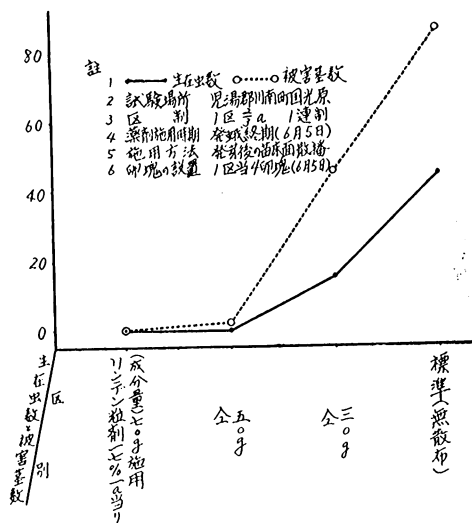 80
60
40
20
0
註
1 生在虫数 被害茎数
2 試験場所 児湯郡川南町国光原
3 区制 1区 a 1連制
4 薬剤施用時期 発蛾終期(6月5日)
5 施用方法 発芽後の苗床面散播
6 卵塊の設置 1区当4卵塊(6月5日)
生在虫数と被害茎数
区別
リンデン粒剤(一七%一a当り
(成分量)七〇g施用
仝 五〇g
仝 三〇g
標準(無散布)